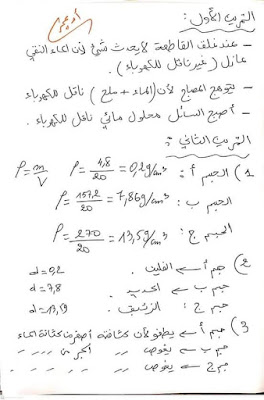 التمرين الأول:
– عند غلق القاطعة لا يحدث شيء لأن الماء النقي
عازل (غير ناقل للكهرباء).
– يتوهج المصباح لأن (الماء + ملح) ناقل للكهرباء
– أصبح السائل محلول مائي ناقل للكهرباء.
التمرين الثاني:
1) الجسم أ: ρ = 4,8/20 = 0,2g/cm³ ρ = m/V
الجسم ب: ρ = 157,2/20 = 7,86g/cm³
الجسم ج: ρ = 270/20 = 13,5g/cm³
2) جسم أ ← الفلين. d=0,2
جسم ب ← الحديد. d=7,8
جسم ج: الزئبق. d=13,5
3) جسم أ ← يطفو لأن كثافته أصغر من كثافة الماء
جسم ب ← يغوص // // أكبر من // //
جسم ج ← يغوص // // // // //